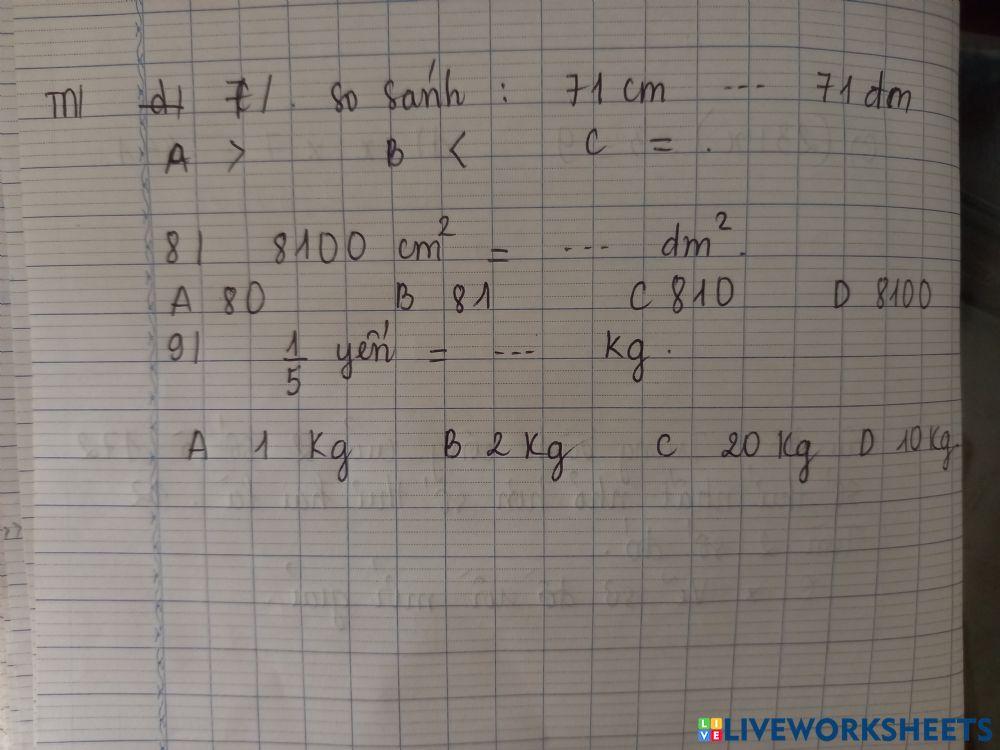 M1 d1 7/. so sánh : 71 cm --- 71 dm
A > B < C = .
8/ 8100 cm² = --- dm².
A 80 B 81 C 810 D 8100
9/ 1/5 yến = --- kg.
A 1 Kg B 2 Kg C 20 Kg D 10 Kg
LIVEWORKSHEETS